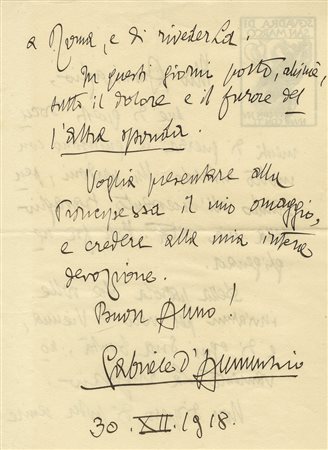 a Roma, e di rivederLa.
In questi giorni porto, ahimè,
tutto il dolore e il furore del
l'altra sponda.
Voglia presentare alla
Principessa il mio omaggio,
e credere alla mia intera
devozione.
Buon Anno!
Gabriele d'Annunzio
30. XII. 1918.
SQVADRA DI
SAN MARCO